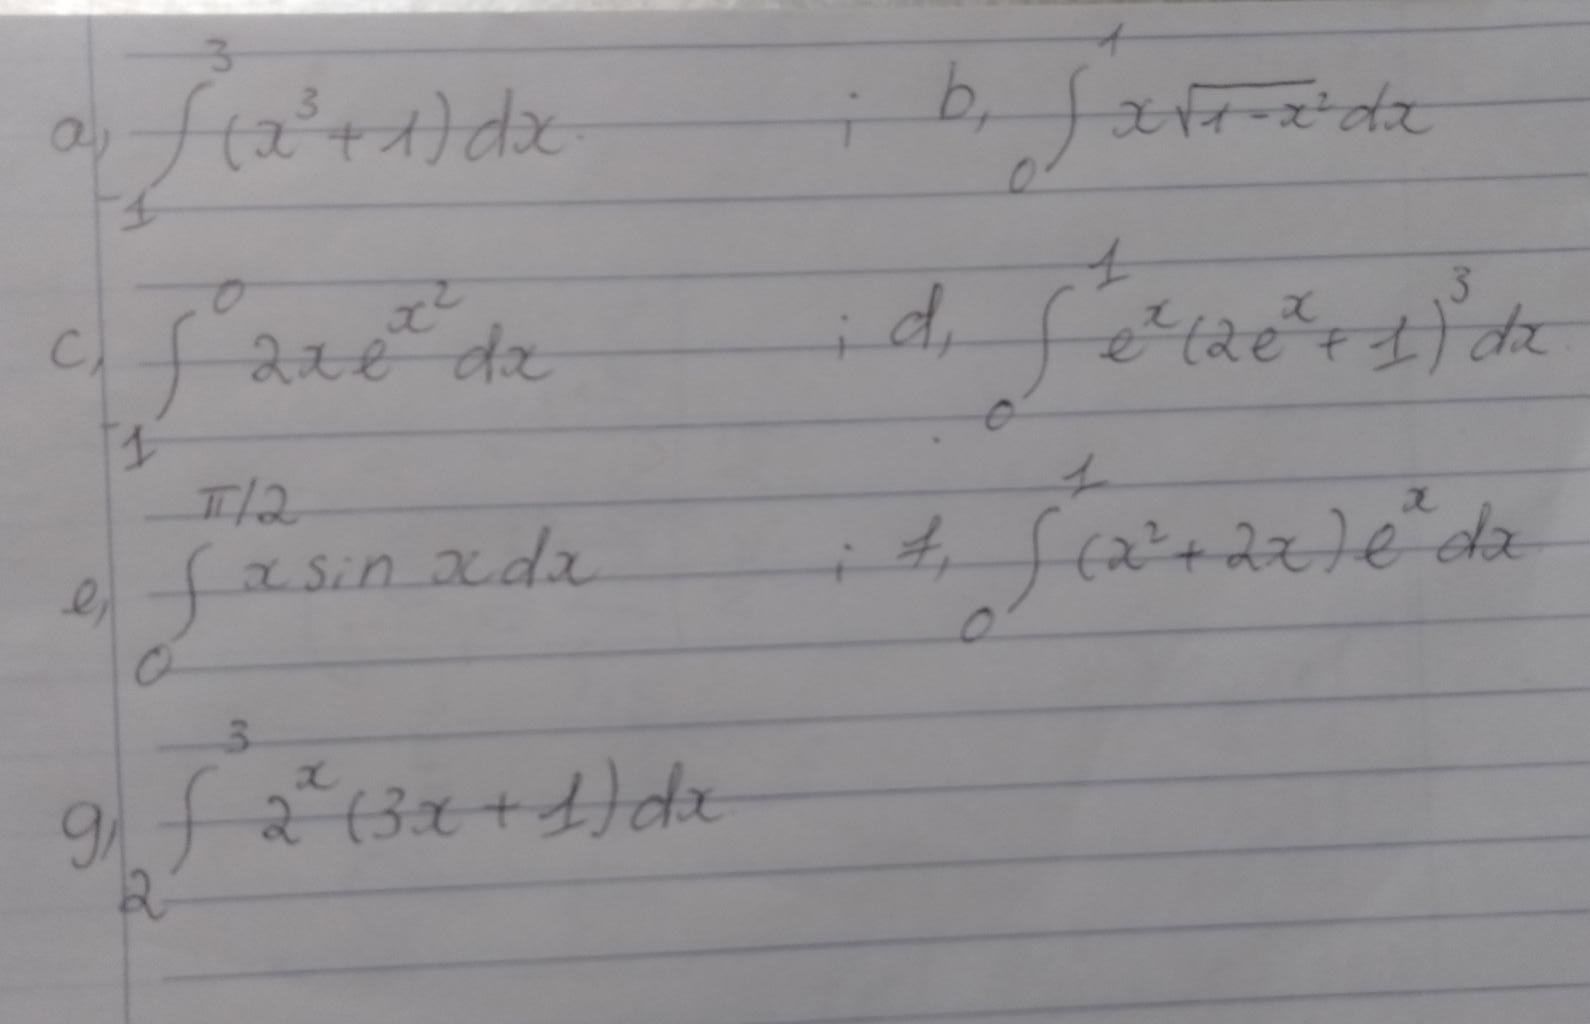 a, ∫₋₁³ (x³ + 1) dx ; b, ∫₀¹ x√(1-x²) dx
c, ∫₋₁⁰ 2xe^(x²) dx ; d, ∫₀¹ e^x (2e^x + 1)³ dx
e, ∫₀^(π/2) x sin x dx ; f, ∫₀¹ (x² + 2x) e^x dx
g, ∫₂³ 2^x (3x + 1) dx